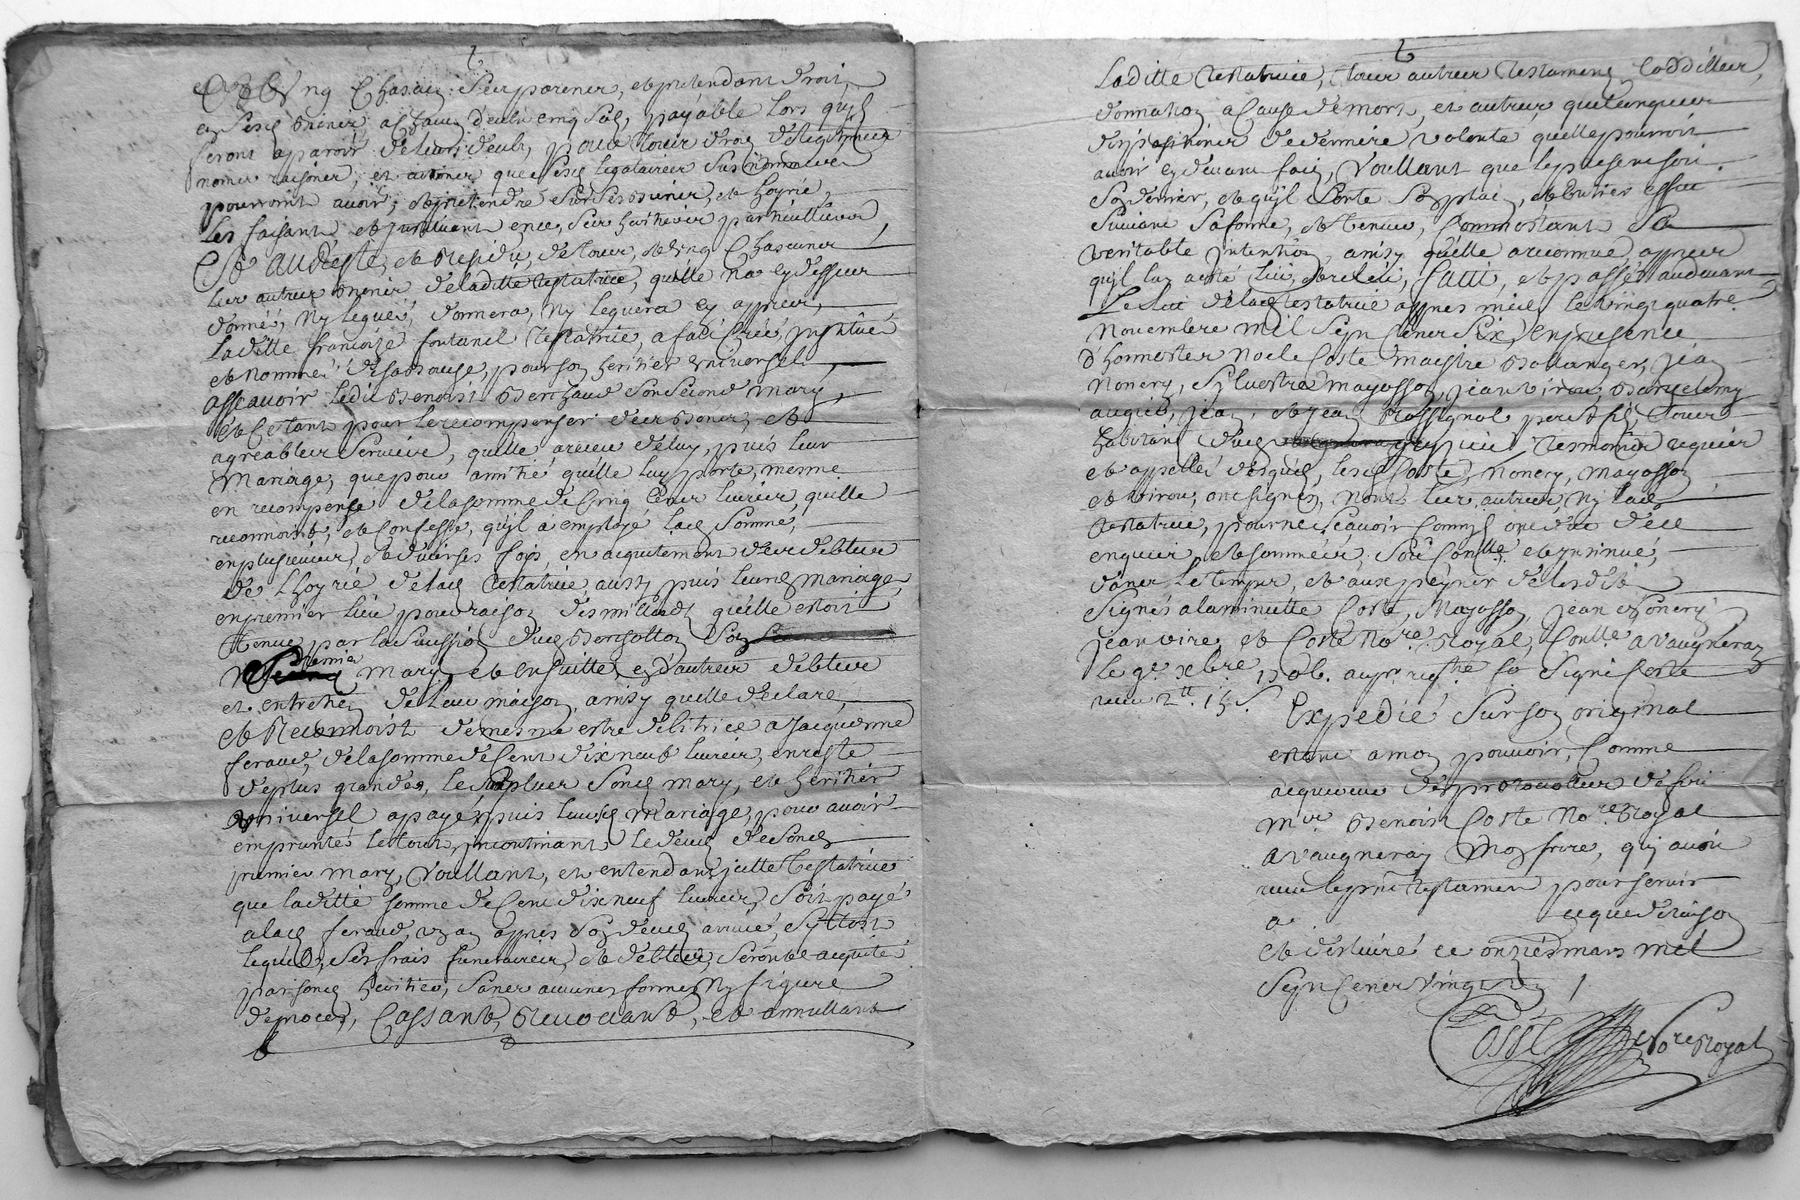 et a Ung Chacun Ses parens, et pretendant droit
en Sesd biens a Chacun deulx cinq Sols, payable Lors quils
seront aparoir de leurs deub, pour tout droit de legitime
nomer raisoner, et autoner que Sesd legataires Susnommes
pourroint avoir, et pretendre Sur Ses biens, et hoyrie,
Les faisant, et Instituant en ce, Ses heritiers particulliers
Et Au Reste, et Residu, de tous, et Ung Chascuns
les autres biens de laditte testatrice, quelle na cy dessus
donné, Ny legué, donnera, Ny leguera cy appres,
Laditte françoize fontanel testatrice, a faict Créé, Institué
et Nommé de sa bouche, pour son heritier Universel,
assavoir Ledit Benoist Berthaud son Second mary,
et Ce tant pour le recompenser des bons, et
agreables Services, quelle a receu de luy, puis leur
Mariage, que pour amitié quelle luy porte, mesme
en recompense de la somme de Cinq Cens livres, quelle
reconnoist, et Confesse, quil a employé lad Somme,
en plusieurs, et diverses fois, en aquitement des debtes
de Lhoyrie de lad testatrice, aussy puis leurd mariage,
en premier lieu pour raison des milliads quelle estoit
tenue par la Succession dud Bonsotton Son
premier mary, et en suitte, en d'autres debtes
et entretien de leur maison, ainsy quelle declare,
et Reconnoist de mesme estre debitrice a Jacquemme
feraud, de la somme de Cent dix neuf livres, en reste
de plus grandes, le surplus Sond mary, et heritier
Universel a payé, puis leursd Mariage, pour avoir
emprunté le tout, Incontinant le deces de Sond
premier mary, Voullant, et entendant Icelle Testatrice
que laditte somme de Cent dix neuf livres, Soit payé
a lad feraud, un an appres Son deces arrivé, Sy tost
lequel, Ses frais funeraires, et debtes, Seront et aquité
par Sond heritier, Sans aucunes forme Ny figure
de proces, Cassant, Revocant, et annullant
Laditte testatrice, tous autres testamens, Coddilles,
donation a Cause de mort, et autres quelconques
dispositions de derniere volonté quelle pourroit
avoir cy devant fait, Voullant que le present soit
Son dernier, et quil Sorte Son plain, et entier effect
Suivant Sa forme, et teneur, Commestant Sa
veritable Intention, ainsy quelle a reconnue, appres
quil luy a esté leu, et releu, faict, et passé au devant
Le lict de lad testatrice appres midy le vingt quatre
Novembre mil Sept Cens Six, En presence
d'honnestes Noel Coste maistre Bollanger, Jean
Nonery, Sylvestre Mayosson, Jean viron, Barthelemy
augier, Jean, et Jean Rossignol pere et fils, tous
habitans dud tesmoins requis
et appellé desquels, lesd Coste, Nonery, Mayosson
et viron, ont signés, Nont les autres, Ny lad
testatrice, pour ne Scavoir Comme ont dit de ce
enquis, et sommés, Soit Conllé et Insinué,
dans le temps, et aux peynes de ledit
Signés a la minutte Coste, Mayosson, Jean Nonery,
Jean viron et Coste No.re Royal, Conll.e a Vaugneray
le 9.e Xbre 1706. au p.r reg.tre fo Signé Coste
receu 2ll. 15 S.
Expedié Sur Son original
estant a mon pouvoir, Comme
acquereur des protocolles de feu
M.re Benoist Coste No.re Royal
a Vaugneray Mon frere, qui avoit
receu le pnt testament pour servir
a ce que de raison
et destiné ce onzies mars mil
Sept Cens Vingt
Coste No.re Royal